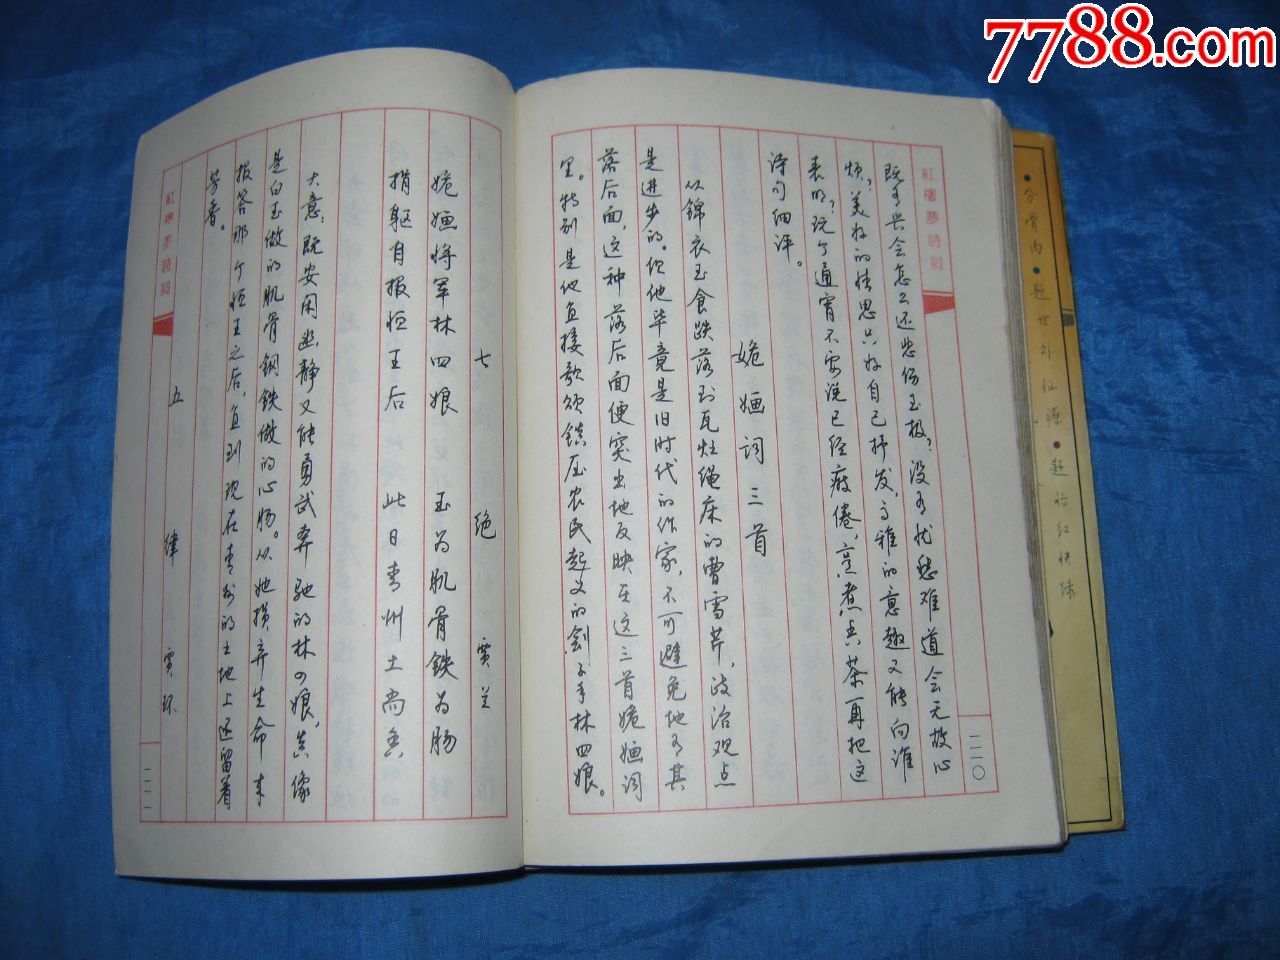 7788.com
紅樓夢詩詞
二二〇
既有兴会怎么还悲伤至极？没有忧愁难道会无故心
烦？美好的情思只好自己抒发，高雅的意趣又能向谁
表明？玩了通宵不要说已经疲倦，烹煮点茶再把这
诗句细评。
姽婳词三首
从锦衣玉食跌落到瓦灶绳床的曹雪芹，政治观点
是进步的。但他毕竟是旧时代的作家，不可避免地有其
落后面，这种落后面便突出地反映在这三首姽婳词
里。特别是他直接歌颂镇压农民起义的刽子手林四娘。
七绝 贾兰
姽婳将军林四娘 玉为肌骨铁为肠
捐躯自报恒王后 此日青州土尚香
大意：既安闲幽静又能勇武奔驰的林四娘，真像
是白玉做的肌骨钢铁做的心肠。从她损弃生命来
报答那个恒王之后，直到现在青州的土地上还留着
芳香。
五律 贾环
紅樓夢詩詞
二二一
•分骨肉•题世外仙源•题怡红快绿